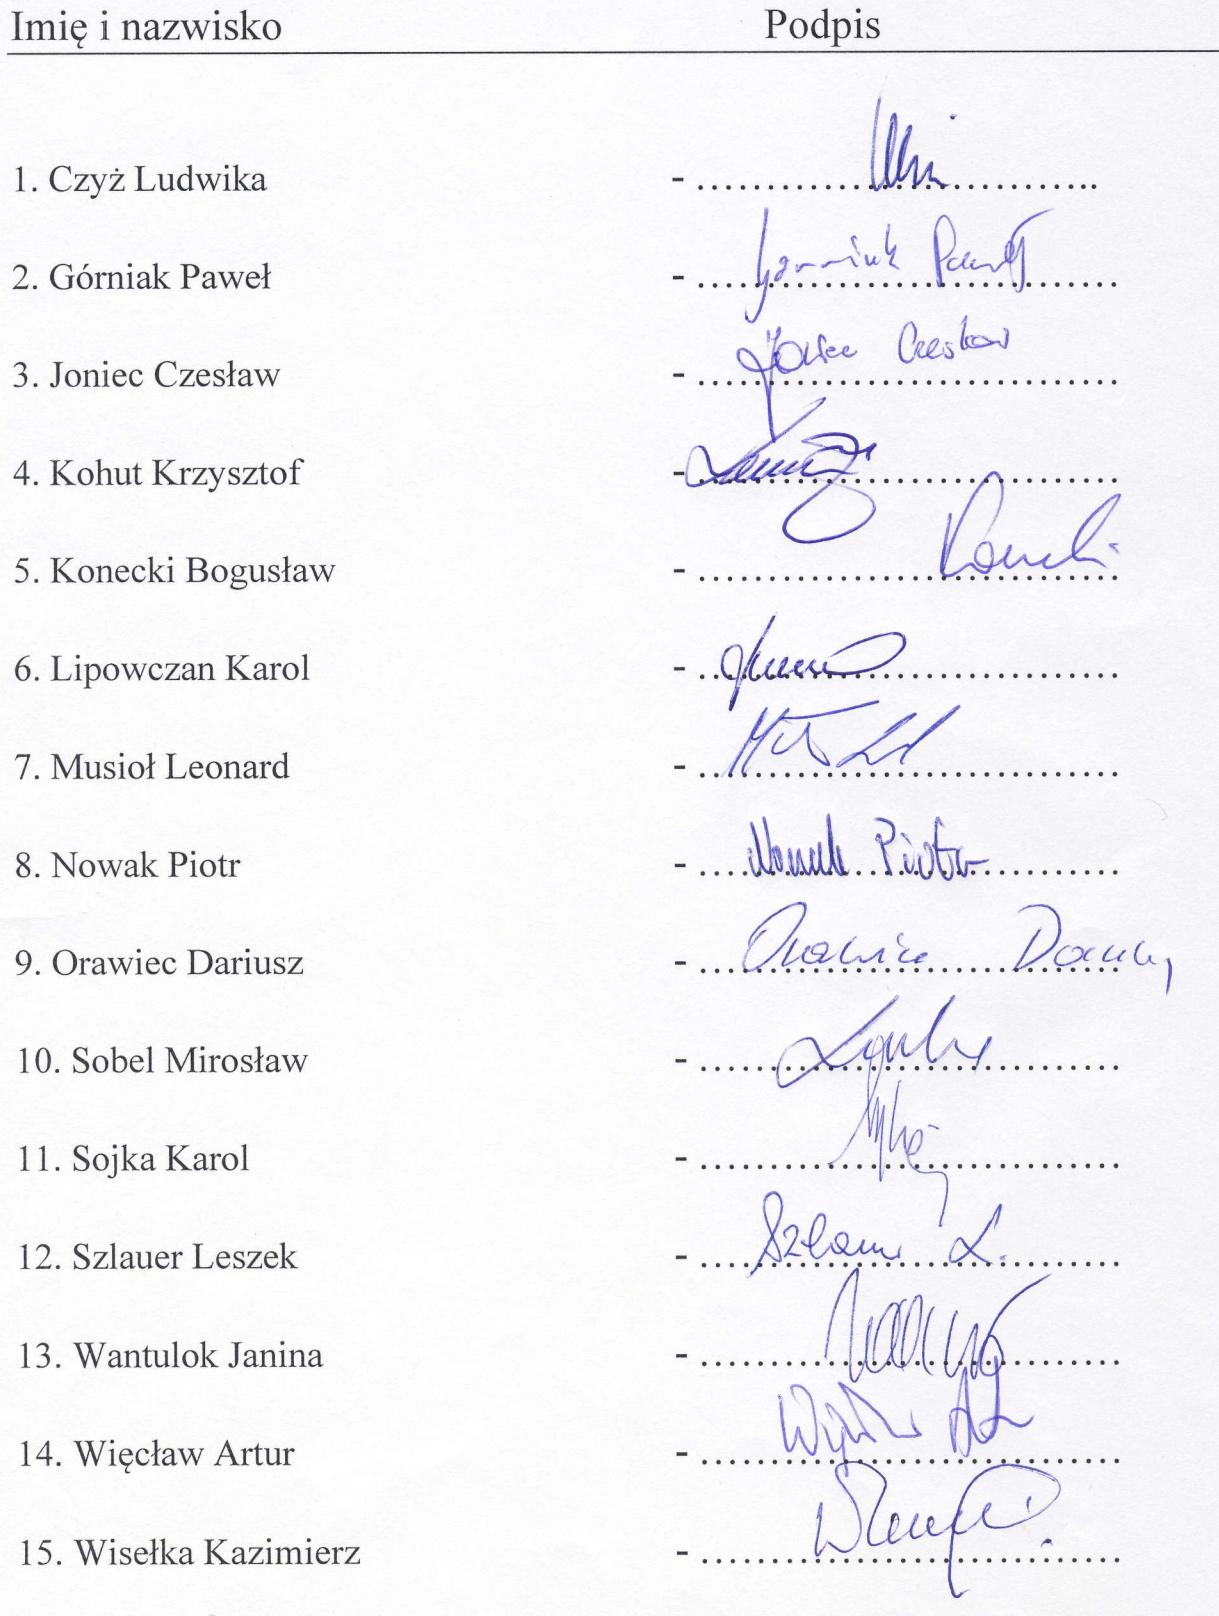 Imię i nazwisko Podpis
1. Czyż Ludwika - ........................................
2. Górniak Paweł - ........ Górniak Paweł ........
3. Joniec Czesław - ........ Joniec Czesław ........
4. Kohut Krzysztof - ........................................
5. Konecki Bogusław - ........................................
6. Lipowczan Karol - ........................................
7. Musioł Leonard - ........................................
8. Nowak Piotr - ........ Nowak Piotr ........
9. Orawiec Dariusz - ........ Orawiec ........
10. Sobel Mirosław - ........................................
11. Sojka Karol - ........................................
12. Szlauer Leszek - ........ L. ........
13. Wantulok Janina - ........................................
14. Więcław Artur - ........................................
15. Wisełka Kazimierz - ........................................